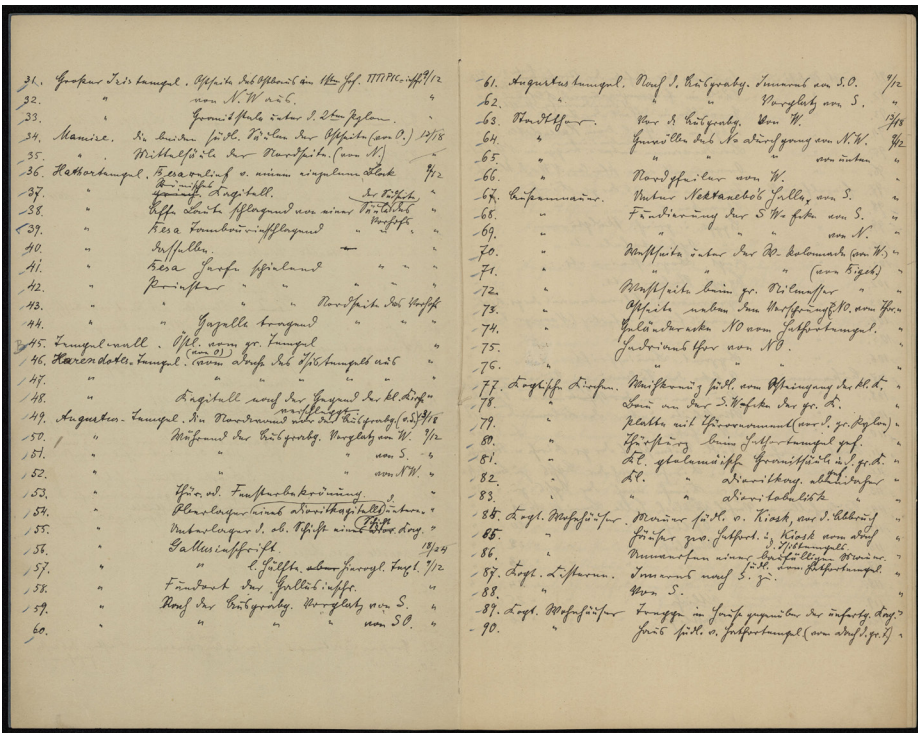 31. Großer Isistempel. Ostseite des Ostbaus im 1ten Hof. 9/12
32. " von N.W aus. "
33. " Granitstele unter d. 2ten Pylon. "
34. Mamisi. die beiden südl. Säulen der Ostseite (von O.) 12/18
35. " Mittelsäule der Nordseite. (von N.) "
36. Hathortempel. Besarelief v. einem einzelnen Block 9/12
37. " Römisches Kapitell. "
38. " Affe Laute schlagend von einer Säule des Vorhofs der Südseite "
39. " Besa Tambourinschlagend " " "
40. " dasselbe. — "
41. " Besa Harfe spielend " " "
42. " Priester " " " "
43. " " " " Nordseite des Vorhofs
44. " " Gazelle tragend " " "
45. Tempelwall. Östl. vom gr. Tempel "
46. Harendotes-Tempel. (von O) vom Dache des Isistempels aus "
47. " " " " " "
48. " Kapitell nach der Gegend der kl. Kirche verschleppt "
49. Augustus-Tempel. die Nordwand vor der Ausgrabg. (v. S.) 13/18
50. " Während der Ausgrabg. Vorplatz von W. 9/12
51. " " " von S. "
52. " " von NW. "
53. " Thür. od. Fensterbekrönung. "
54. " Oberlager eines Dioritkapitells d. unteren "
55. " Unterlager d. ob. Schicht eines Diorit Kap. "
56. " Gallusinschrift. 18/24
57. " " l. Hälfte. hierogl. Inst. 9/12
58. " Fundort der Gallusinschr. "
59. " Nach der Ausgrabg. Vorplatz von S. "
60. " " " von SO. "
61. Augustustempel. Nach d. Ausgrabg. Inneres von S.O. 9/12
62. " " " Vorplatz von S. "
63. Stadtthor. Vor d. Ausgrabg. Von W. 13/18
64. " Gewölbe des N= Durchgang von N.W. 9/12
65. " " " " von unten "
66. " Nordpfeiler von W. "
67. Aussenmauer. Unter Nektanebos Halle, von S. "
68. " Fundierung der SW Ecke von S. "
69. " " " " von N. "
70. " Westseite unter der W-kolonnade (von W.) "
71. " " " " (von Bigeh) "
72. " Westseite beim gr. Nilmesser "
73. " Ostseite neben dem Vorsprung NO. vom Thor. "
74. " Geländerecke NO vom Hathortempel. "
75. " Hadriansthor von NO. "
76. " " " "
77. Koptische Kirchen. Weihkreuz südl. vom Osteingang der kl. K. "
78. " Bau an der S.W ecke der gr. K. "
79. " Platte mit Thürornament (vor d. gr. Pylon) "
80. " Thürsturz beim Hathortempel gef. "
81. " Kl. ptolemäische Granitsäule i. d. gr. K. "
82. " Kl. " Dioritkap. ebendaher "
83. " " Dioritobelisk "
84. Kopt. Wohnhäuser. Mauer südl. v. Kiosk, vor d. Abbruch "
85. " Häuser zw. Hathort. u. Kiosk vom Dach d. Isistempels "
86. " Umwerfen einer baufälligen Mauer. südl. vom Hathortempel. "
87. Kopt. Zisterne. Inneres nach S. zu. "
88. " Von S. "
89. Kopt. Wohnhäuser Treppe im Hause gegenüber der unfertg. Kap. "
90. " Haus südl. v. Hathortempel (vom Dach d. gr. T.) "